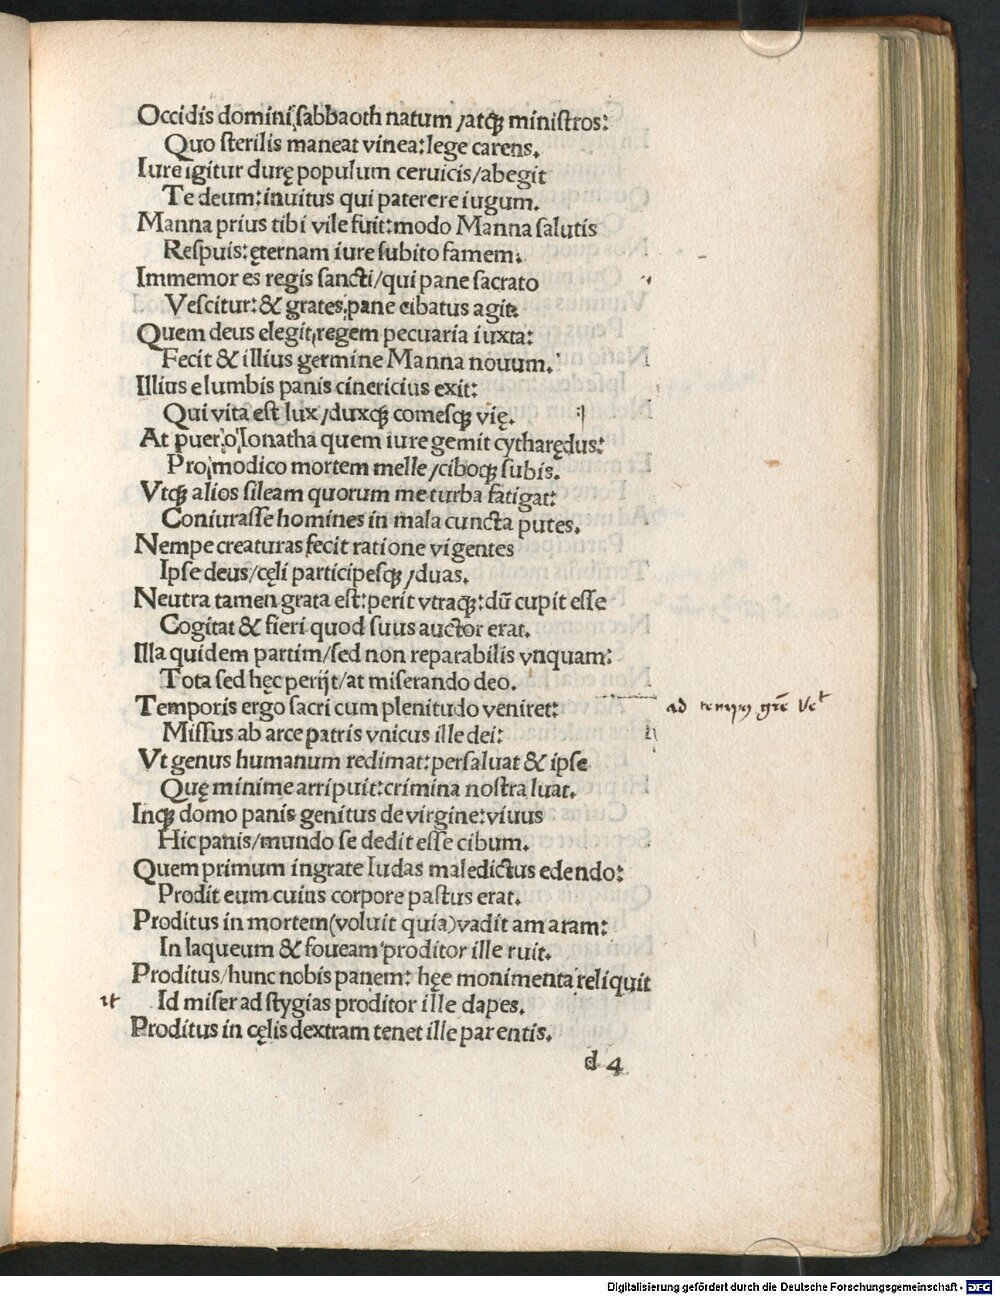 Occidis domini, sabbaoth natum /atqꝫ ministros:
Quo sterilis maneat vinea: lege carens.
Iure igitur durę populum ceruicis/abegit
Te deum: inuitus qui paterere iugum.
Manna prius tibi vile fuit: modo Manna salutis
Respuis: ęternam iure subito famem.
Immemor es regis sancti/qui pane sacrato
Vescitur: & grates, pane cibatus agit.
Quem deus elegit, regem pecuaria iuxta:
Fecit & illius germine Manna nouum.
Illius e lumbis panis cinericius exit:
Qui vita est lux /duxqꝫ comesqꝫ vię.
At puer, o, Ionatha quem iure gemit cytharędus:
Pro, modico mortem melle /ciboqꝫ subis.
Vtqꝫ alios sileam quorum me turba fatigat:
Coniurasse homines in mala cuncta putes.
Nempe creaturas fecit ratione vigentes
Ipse deus/cęli participesqꝫ /duas.
Neutra tamen grata est: perit vtraqꝫ: dū cupit esse
Cogitat & fieri quod suus auctor erat.
Illa quidem partim/sed non reparabilis vnquam:
Tota sed hęc perijt/at miserando deo.
Temporis ergo sacri cum plenitudo veniret:
ad
Missus ab arce patris vnicus ille dei:
Vt genus humanum redimat: persaluat & ipse
Quę minime arripuit: crimina nostra luat.
Inqꝫ domo panis genitus de virgine: viuus
Hic panis/mundo se dedit esse cibum.
Quem primum ingrate Iudas maledictus edendo:
Prodit eum cuius corpore pastus erat.
Proditus in mortem (voluit quia) vadit amaram:
In laqueum & foueam proditor ille ruit.
Proditus/hunc nobis panem: hęc monimenta reliquit
Id miser ad stygias proditor ille dapes.
Proditus in cęlis dextram tenet ille parentis.
d 4
Digitalisierung gefördert durch die Deutsche Forschungsgemeinschaft - DFG